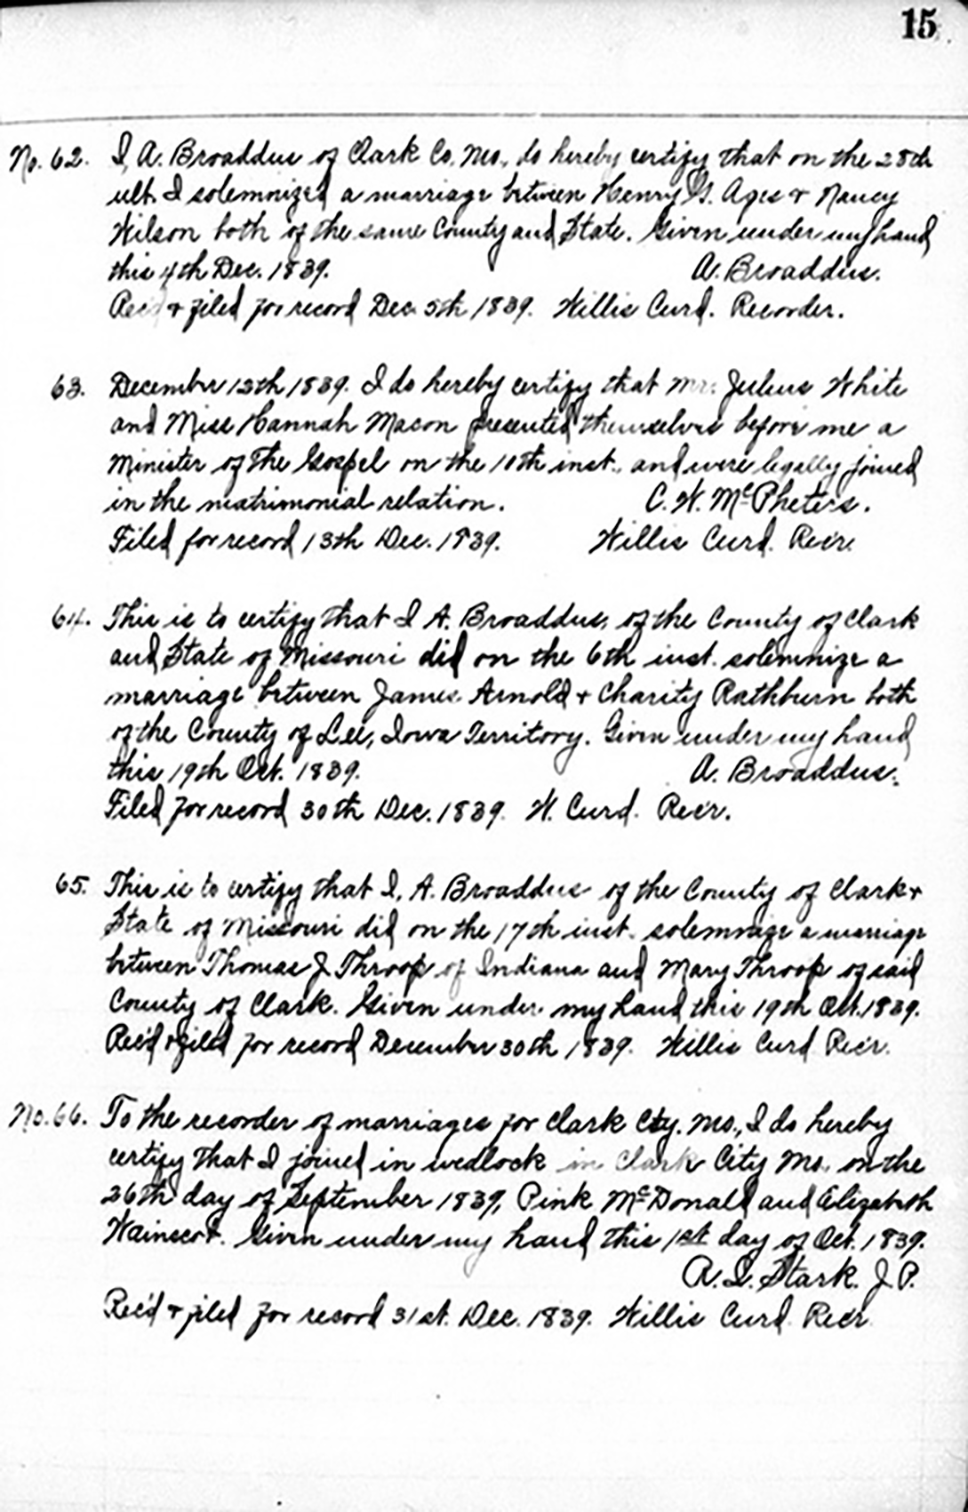 15
No. 62. I, A. Broaddus of Clark Co. Mo., do hereby certify that on the 28th
ult. I solemnized a marriage between Henry G. Ages + Nancy
Wilson both of the same County and State. Given under my hand
this 4th Dec. 1839. A. Broaddus.
Rec'd + filed for record Dec. 5th 1839. Willis Curd. Recorder.
63. December 12th 1839. I do hereby certify that Mr. Julius White
and Miss Hannah Macon presented themselves before me a
Minister of the Gospel on the 10th inst., and were legally joined
in the matrimonial relation. C. W. McPheters.
Filed for record 13th Dec. 1839. Willis Curd. Rec'r.
64. This is to certify that I A. Broaddus, of the County of Clark
and State of Missouri did on the 6th inst. solemnize a
marriage between James Arnold + Charity Rathburn both
of the County of Lee, Iowa Territory. Given under my hand
this 19th Oct. 1839. A. Broaddus.
Filed for record 30th Dec. 1839. W. Curd. Rec'r.
65. This is to certify that I, A. Broaddus of the County of Clark +
State of Missouri did on the 17th inst. solemnize a marriage
between Thomas J Throop of Indiana and Mary Throop of said
County of Clark. Given under my hand this 19th Oct. 1839.
Rec'd + filed for record December 30th 1839. Willis Curd Rec'r.
No. 66. To the recorder of marriages for Clark Cty. Mo., I do hereby
certify that I joined in wedlock in Clark City Mo. on the
26th day of September 1839, Pink McDonald and Elizabeth
Wainscot. Given under my hand this 1st day of Oct. 1839.
A. L. Stark. J. P.
Rec'd + filed for record 31st. Dec. 1839. Willis Curd Rec'r